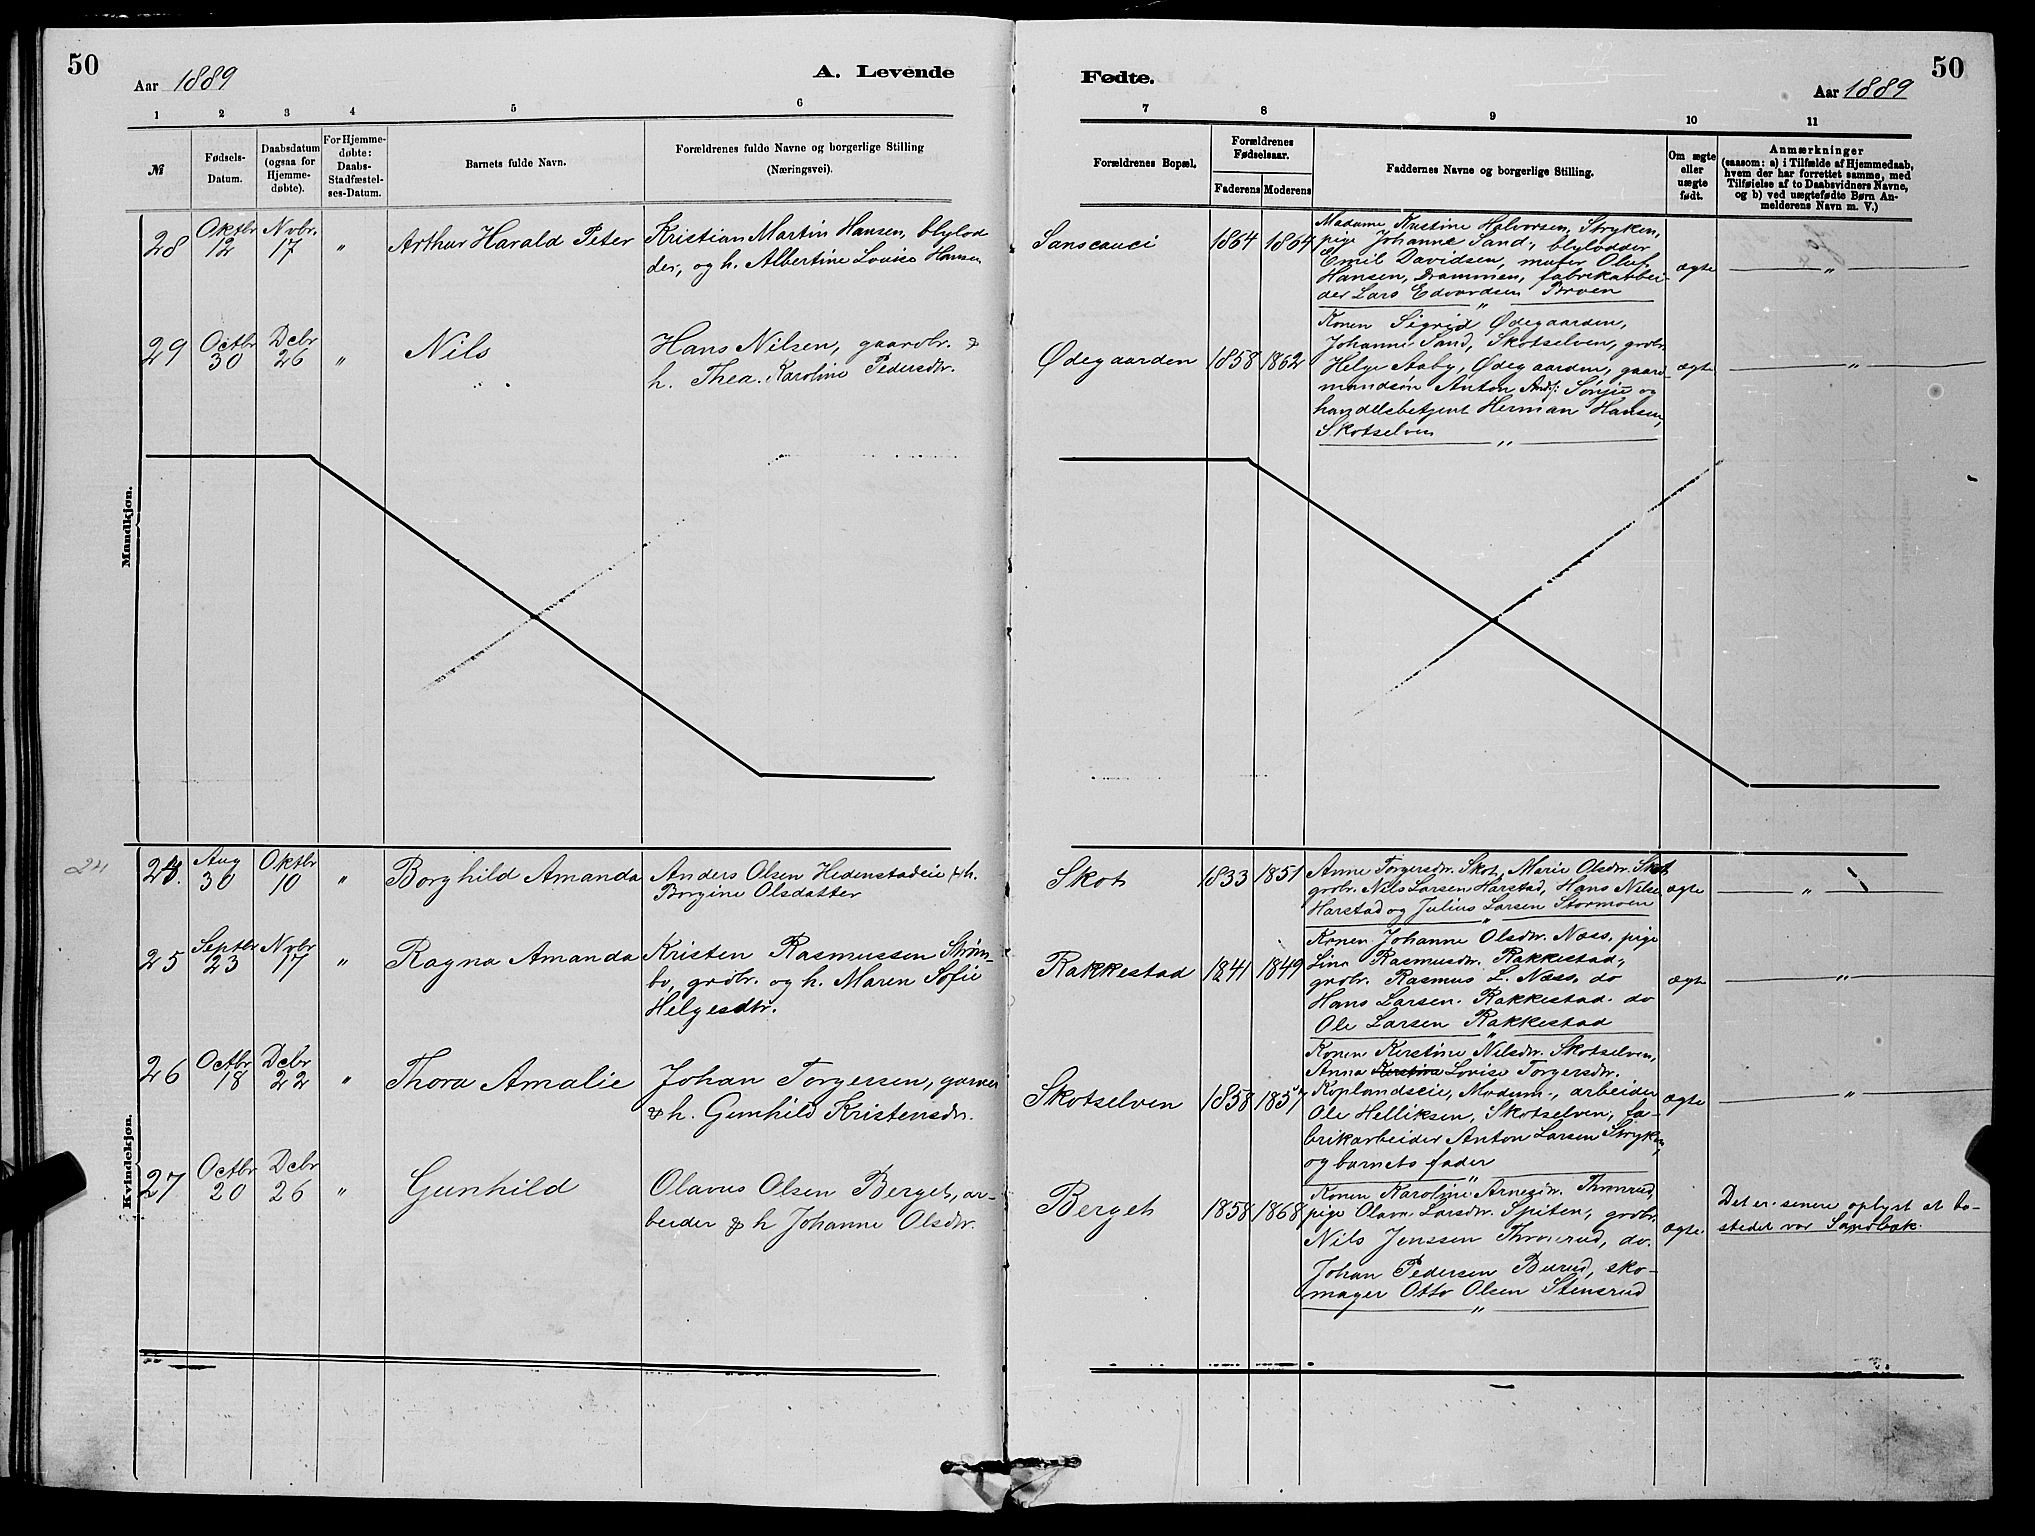 50
Aar 1889
A. Levende
Fødte.
Aar 1889
50
1 2 3 4 5 6 7 8 9 10 11
№
Fødsels-
Datum.
Daabsdatum
(ogsaa for
Hjemme-
døbte).
For Hjemme-
døbte:
Daabs-
Stadfæstel-
ses-Datum.
Barnets fulde Navn.
Forældrenes fulde Navne og borgerlige Stilling
(Næringsvei).
Forældrenes Bopæl.
Forældrenes
Fødselsaar.
Faderens Moderens
Faddernes Navne og borgerlige Stilling.
Om ægte
eller
uægte
født.
Anmærkninger
(saasom: a) i Tilfælde af Hjemmedaab,
hvem der har forrettet samme, med
Tilføielse af to Daabsvidners Navne,
og b) ved uægtefødte Børn An-
melderens Navn m. V.)
Mandkjøn.
28
Oktbr
12
Novbr.
17
"
Arthur Harald Peter
Kristian Martin Hansen, blylod
der, og h. Albertine Lovise Hansen
Sanscauci
1864 1864
Madame Kristine Halvorsen, Stryken,
pige Johanne Sand, blylodder
Emil Davidsen, Oluf
Hansen, Drammen, fabrikarbei-
der Lars Edvardsen Broen
ægte
"
29
Octbr
30
Dcbr
26
"
Nils
Hans Nilsen, gaardbr. &
h. Thea Karoline Pedersdtr.
Ødegaarden
1858 1862
Konen Sigrid Ødegaarden,
Johanne Sand, Skotselven, grdbr.
Helge Aaby, Ødegaarden, gaard
mandsøn Anton Andr: Sønju og
handelsbetjent Herman Hansen,
Skotselven
ægte
"
Kvindekjøn.
24
24.
Aug
30
Oktbr
10
"
Borghild Amanda
Anders Olsen Hedenstadeie & h.
Borgine Olsdatter
Skot
1833 1851
Anne Torgersdtr. Skot, Marie Olsdtr. Skot
grdbr. Nils Larsen Harstad, Hans Nilsen
Harstad og Julius Larsen Stormoen
ægte
"
25
Septbr
23
Nvbr
17
"
Ragna Amanda
Kristen Rasmussen Strøm-
bo, grdbr. og h. Maren Sofie
Helgesdtr.
Rakkestad
1841 1849
Konen Johanne Olsdtr. Næss, pige
Lina Rasmusdtr. Rakkestad,
grdbr. Rasmus L. Næss, do
Hans Larsen Rakkestad. do
Ole Larsen Rakkestad
ægte
"
26
Octbr
18
Dcbr
22
"
Thora Amalie
Johan Torgersen, garver
& h. Gunhild Kristensdtr.
Skotselven
1858 1857
Konen Kerstine Nilsdtr. Skotselven,
Anna Kerstine Lovise Torgersdtr.
Koplandseie, Modum, arbeider
Ole Helliksen, Skotselven, fa-
brikarbeider Anton Larsen Stryken,
og barnets fader
ægte
"
27
Octbr
20
Dcbr
26
"
Gunhild
Olavus Olsen Berget, ar-
beider & h Johanne Olsdtr.
Berget
1858 1868
Konen Karoline Arnesdtr. Thronrud,
pige Olava Larsdtr. Spiten, grdbr.
Nils Jenssen Thronrud, do.
Johan Pedersen Burud, sko-
mager Otto Olsen Stensrud
ægte
Det er senere oplyst at bo-
stedet var Sandbæk.